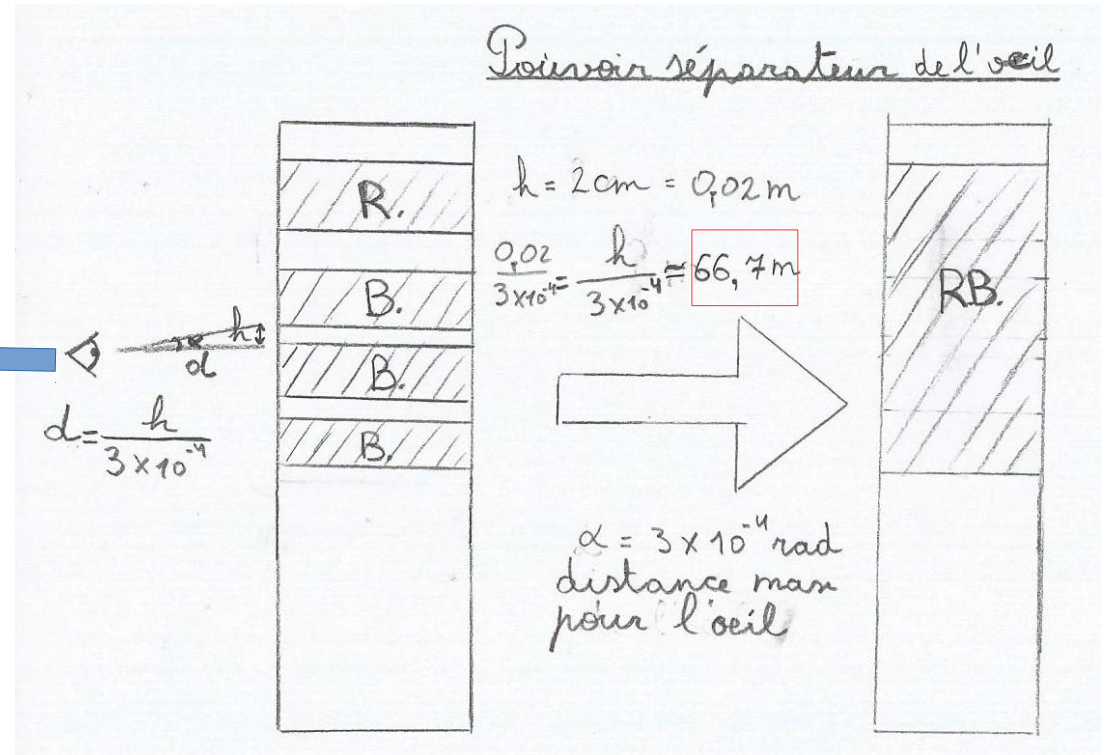 Pouvoir séparateur de l'oeil
R.
B.
B.
B.
h
α
d
d = h / 3 × 10⁻⁴
h = 2 cm = 0,02 m
0,02 / 3×10⁻⁴ = h / 3×10⁻⁴ ≈ 66,7 m
α = 3 × 10⁻⁴ rad
distance max
pour l'oeil
RB.